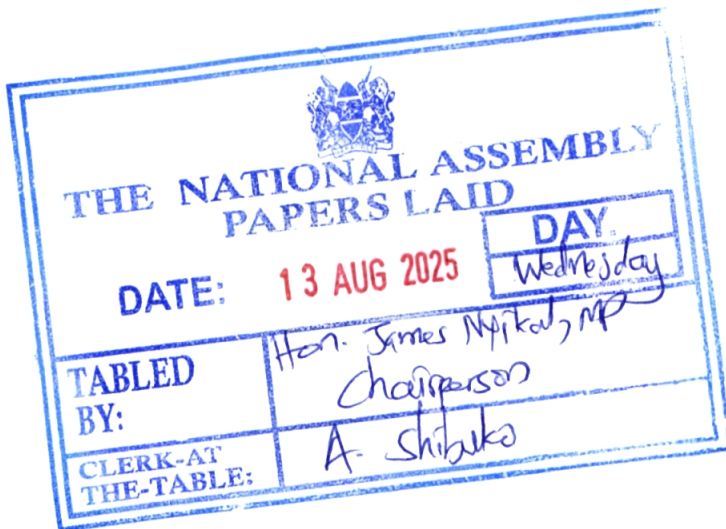 THE NATIONAL ASSEMBLY
PAPERS LAID
DATE: 13 AUG 2025
DAY.
Wednesday
TABLED
BY:
Hon. James Nyikal, MP
Chairperson
CLERK-AT
THE-TABLE:
A. Shibuko